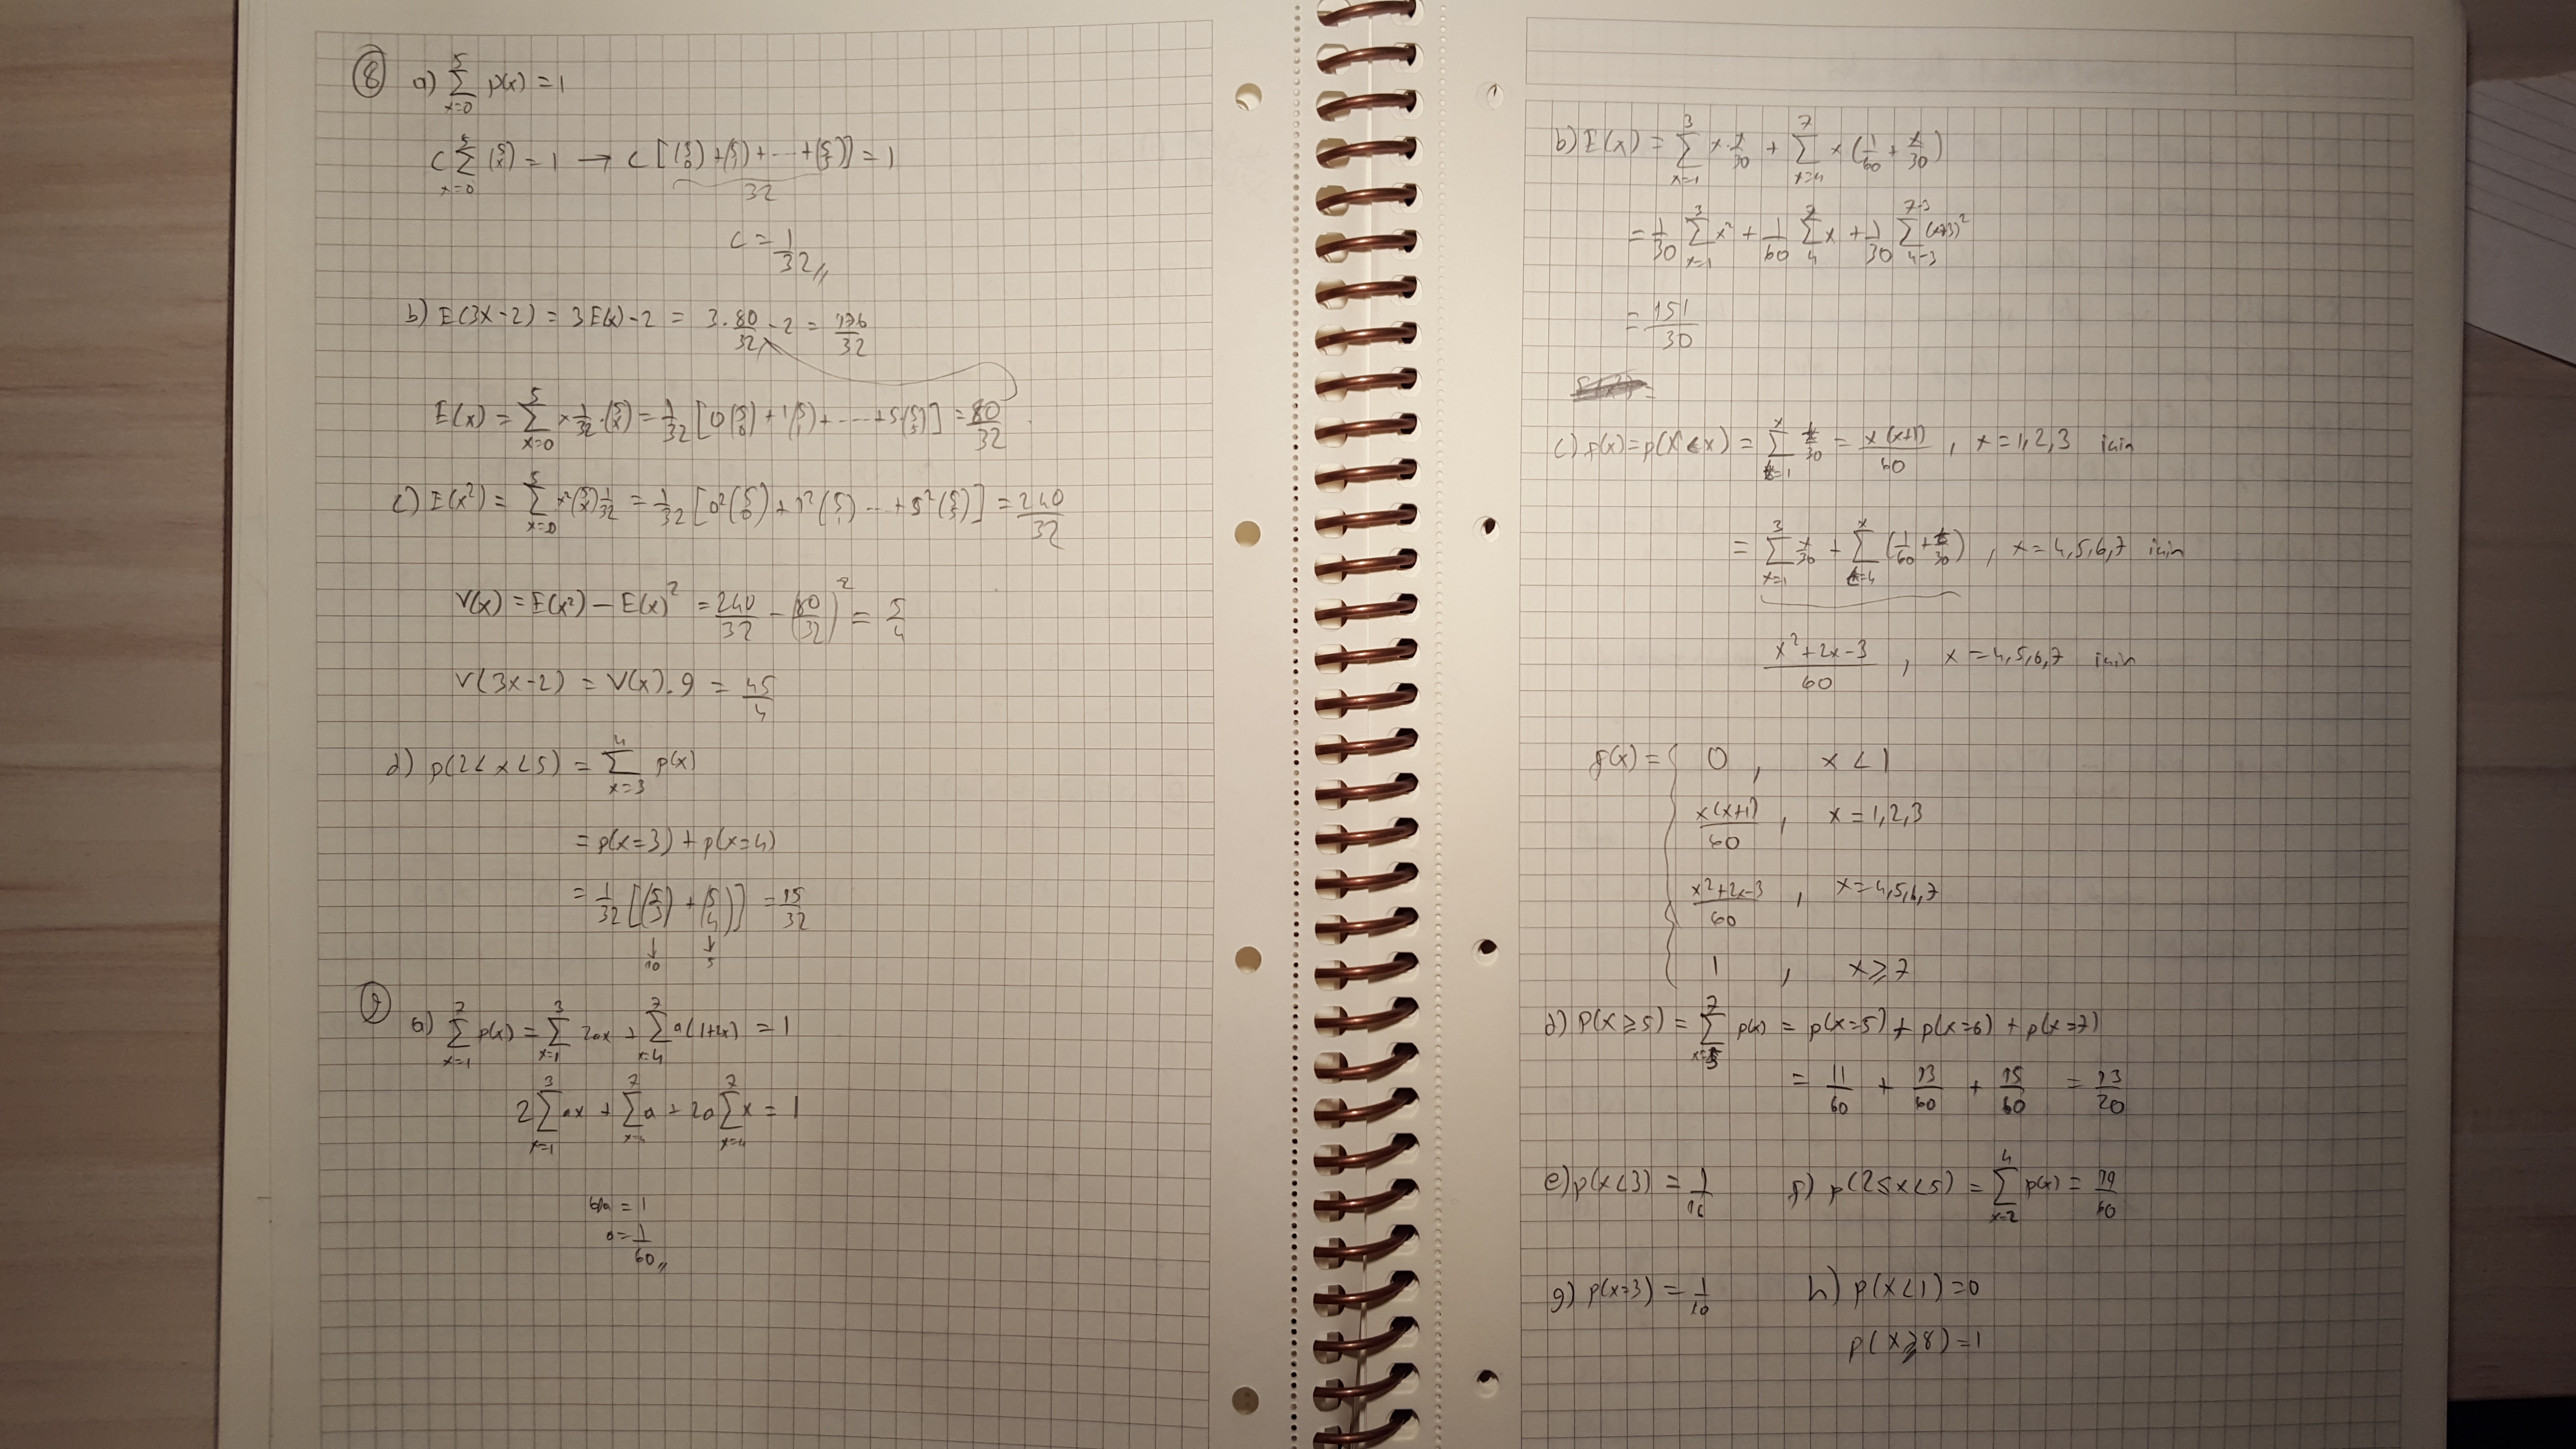 ⑧ a) ∑_{x=0}^{5} p(x) = 1
c ∑_{x=0}^{5} (5 x) = 1 → c [(5 0) + (5 1) + ··· + (5 5)] = 1
32
c = 1/32 //
b) E(3x-2) = 3E(x)-2 = 3·80/32 - 2 = 176/32
E(x) = ∑_{x=0}^{5} x 1/32 · (5 x) = 1/32 [0(5 0) + 1(5 1) + ---- + 5(5 5)] = 80/32
c) E(x²) = ∑_{x=0}^{5} x² (5 x) 1/32 = 1/32 [0² (5 0) + 1² (5 1) ··· + 5² (5 5)] = 240/32
V(x) = E(x²) - E(x)² = 240/32 - (80/32)² = 5/4
V(3x-2) = V(x).9 = 45/4
d) p(2<x<5) = ∑_{x=3}^{4} p(x)
= p(x=3) + p(x=4)
= 1/32 [(5 3) + (5 4)] = 15/32
↓ ↓
10 5
⑨ a) ∑_{x=1}^{7} p(x) = ∑_{x=1}^{3} 2ax + ∑_{x=4}^{7} a(1+2x) = 1
2 ∑_{x=1}^{3} ax + ∑_{x=4}^{7} a + 2a ∑_{x=4}^{7} x = 1
60a = 1
a = 1/60 //
b) E(x) = ∑_{x=1}^{3} x·x/30 + ∑_{x=4}^{7} x (1/60 + x/30)
= 1/30 ∑_{x=1}^{3} x² + 1/60 ∑_{4}^{7} x + 1/30 ∑_{4-3}^{7-3} (x+3)²
= 151/30
=
c) f(x) = p(X<x) = ∑_{t=1}^{x} t/30 = x(x+1)/60 , x = 1,2,3 için
= ∑_{x=1}^{3} x/30 + ∑_{t=4}^{x} (1/60 + t/30) , x = 4,5,6,7 için
x²+2x-3/60 , x = 4,5,6,7 için
f(x) = { 0 , x < 1
x(x+1)/60 , x = 1,2,3
x²+2x-3/60 , x = 4,5,6,7
1 , x ⩾ 7
d) P(x ⩾ 5) = ∑_{x=5}^{7} p(x) = p(x=5) + p(x=6) + p(x=7)
= 11/60 + 13/60 + 15/60 = 13/20
e) p(x<3) = 1/10 f) p(2≤x<5) = ∑_{x=2}^{4} p(x) = 19/60
g) p(x=3) = 1/10 h) p(x<1) = 0
p(x⩾8) = 1